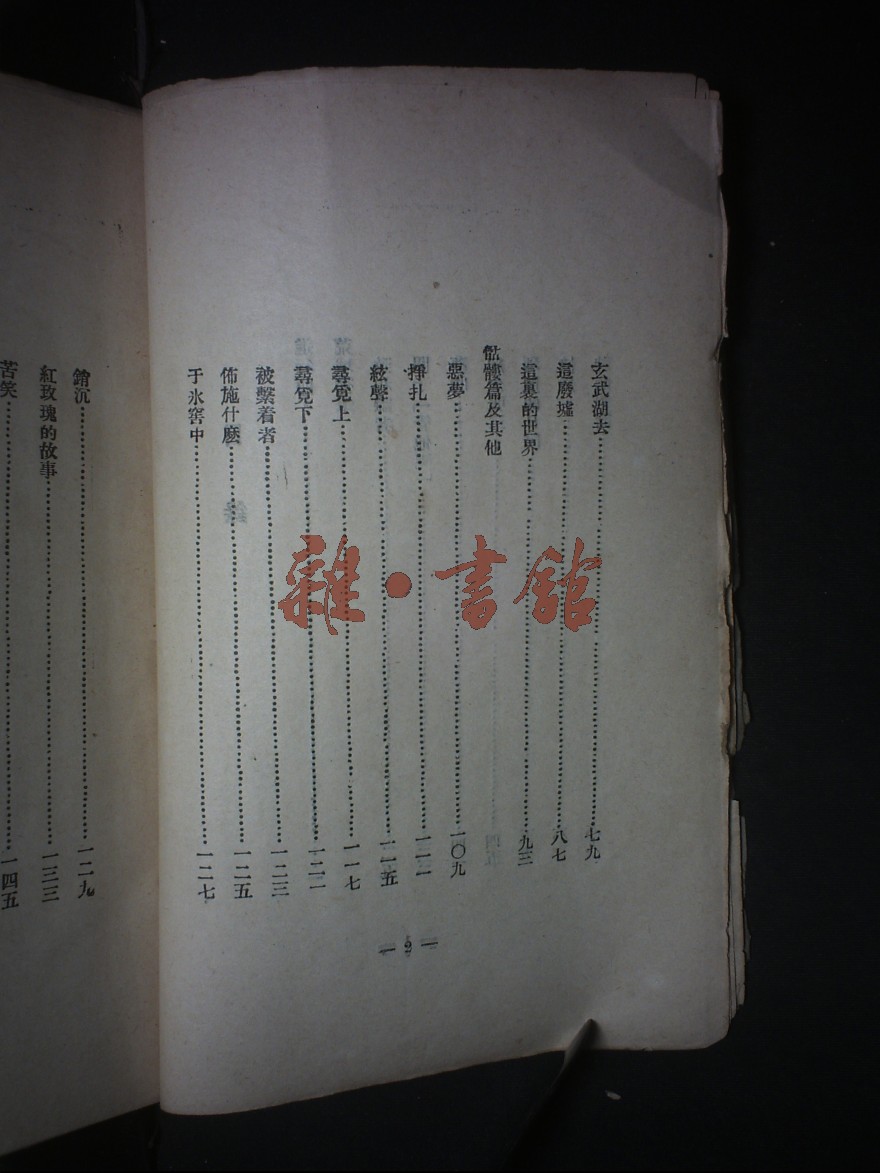 玄武湖去……七九
這廢墟……八七
這裏的世界……九三
骷髏篇及其他
惡夢……一〇九
掙扎……一一一
絃聲……一一五
尋覓上……一一七
尋覓下……一二一
被繫着者……一二三
佈施什麼……一二五
于氷窖中……一二七
— 2 —
銷沉……一二九
紅玫瑰的故事……一三三
苦笑……一四五
雜·書館